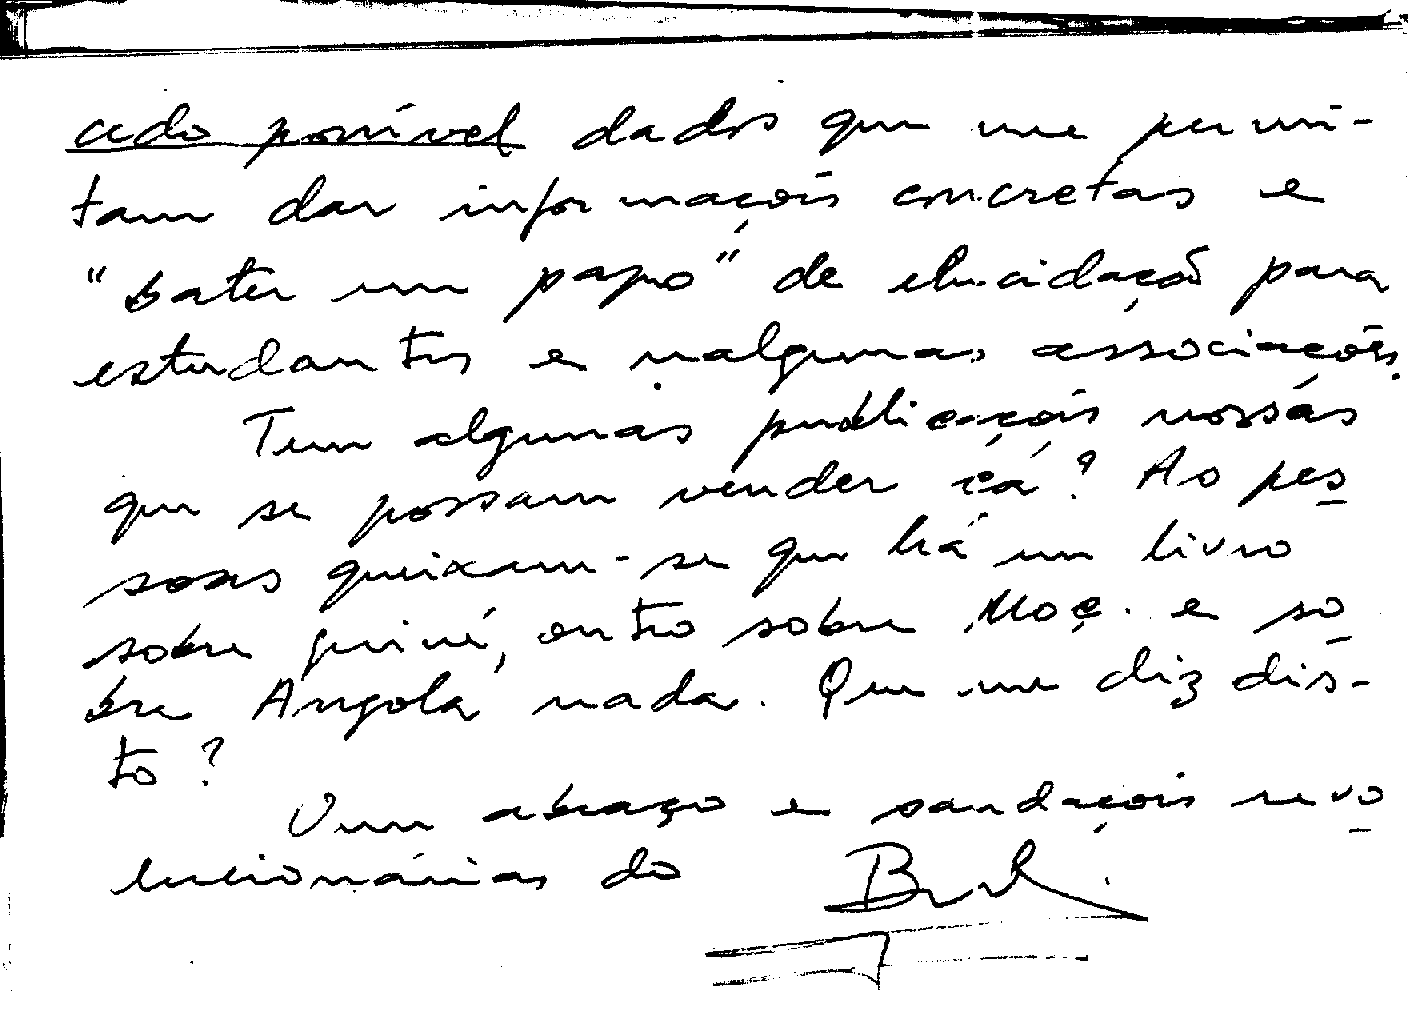 cedo possível dados que me permi-
tam dar informações concretas e
"bater um papo" de elucidação para
estudantes e nalgumas associações.
Tem algumas publicações nossas
que se possam vender cá? As pes
soas queixam-se que há um livro
sobre guiné, outro sobre Moç. e so
bre Angola nada. Que me diz dis-
to?
Um abraço e saudações revo
lucionárias do